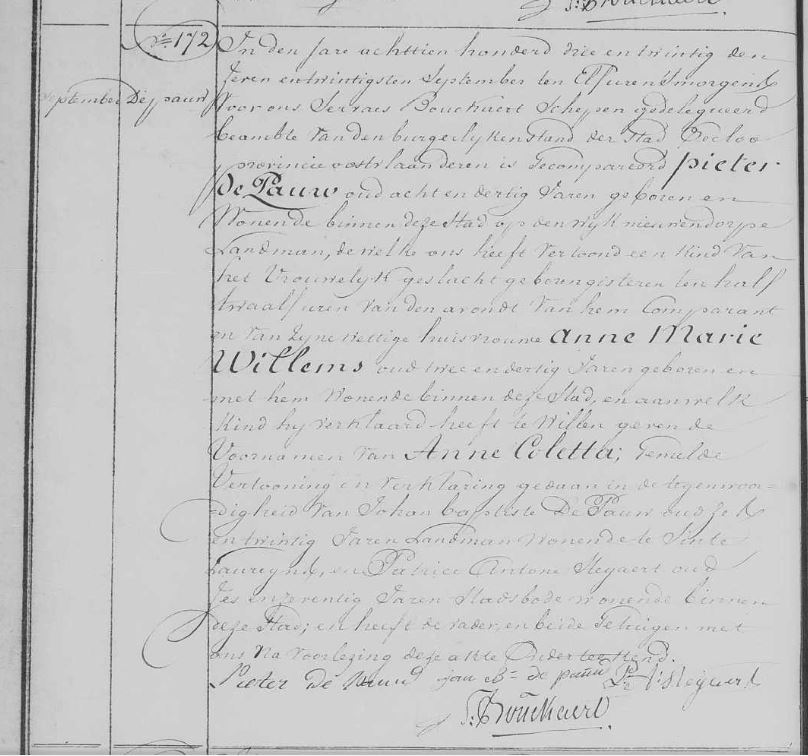 S. Bouckaert
N.º 172 In den jare achttien honderd drie en twintig den
zeven en twintigsten September ten Elf uren s'morgends
September De pauw Voor ons Servaes Bouckaert Schepen gedelegueerd
beambte Van den burgerlyken stand der Stad Eecloo
provincie oostvlaanderen is Gecompareerd pieter
De Pauw oud acht en dertig Jaren geboren en
Wonende binnen deze stad op den wyk nieuwendorpe
Landman, de welke ons heeft Vertoond een Kind Van
het Vrouwelyk geslacht geboren gisteren ten half
twaalf uren Van den avondt Van hem Comparant
en Van Zyne wettige huisvrouwe Anne Marie
Willems oud twee en dertig Jaren geboren en
met hem Wonende binnen deze Stad, en aan welk
Kind hy verklaard heeft te Willen geven de
Voornamen Van Anne Coletta; Gemelde
Vertooning en verklaring gedaan in de tegenwoor=
=digheid Van Johan baptiste De Pauw oud zes
en twintig Jaren Landman Wonende te Sinte
Laureyns, en Patrice Antone Steyaert oud
zes en zeventig Jaren Stadsbode Wonende binnen
deze Stad; en heeft de vader, en beide Getuigen met
ons Na Voorlezing deze akte Onderteekend.
Pieter De Pauw jan Bte de pauw P. A. Steyaert
S. Bouckaert